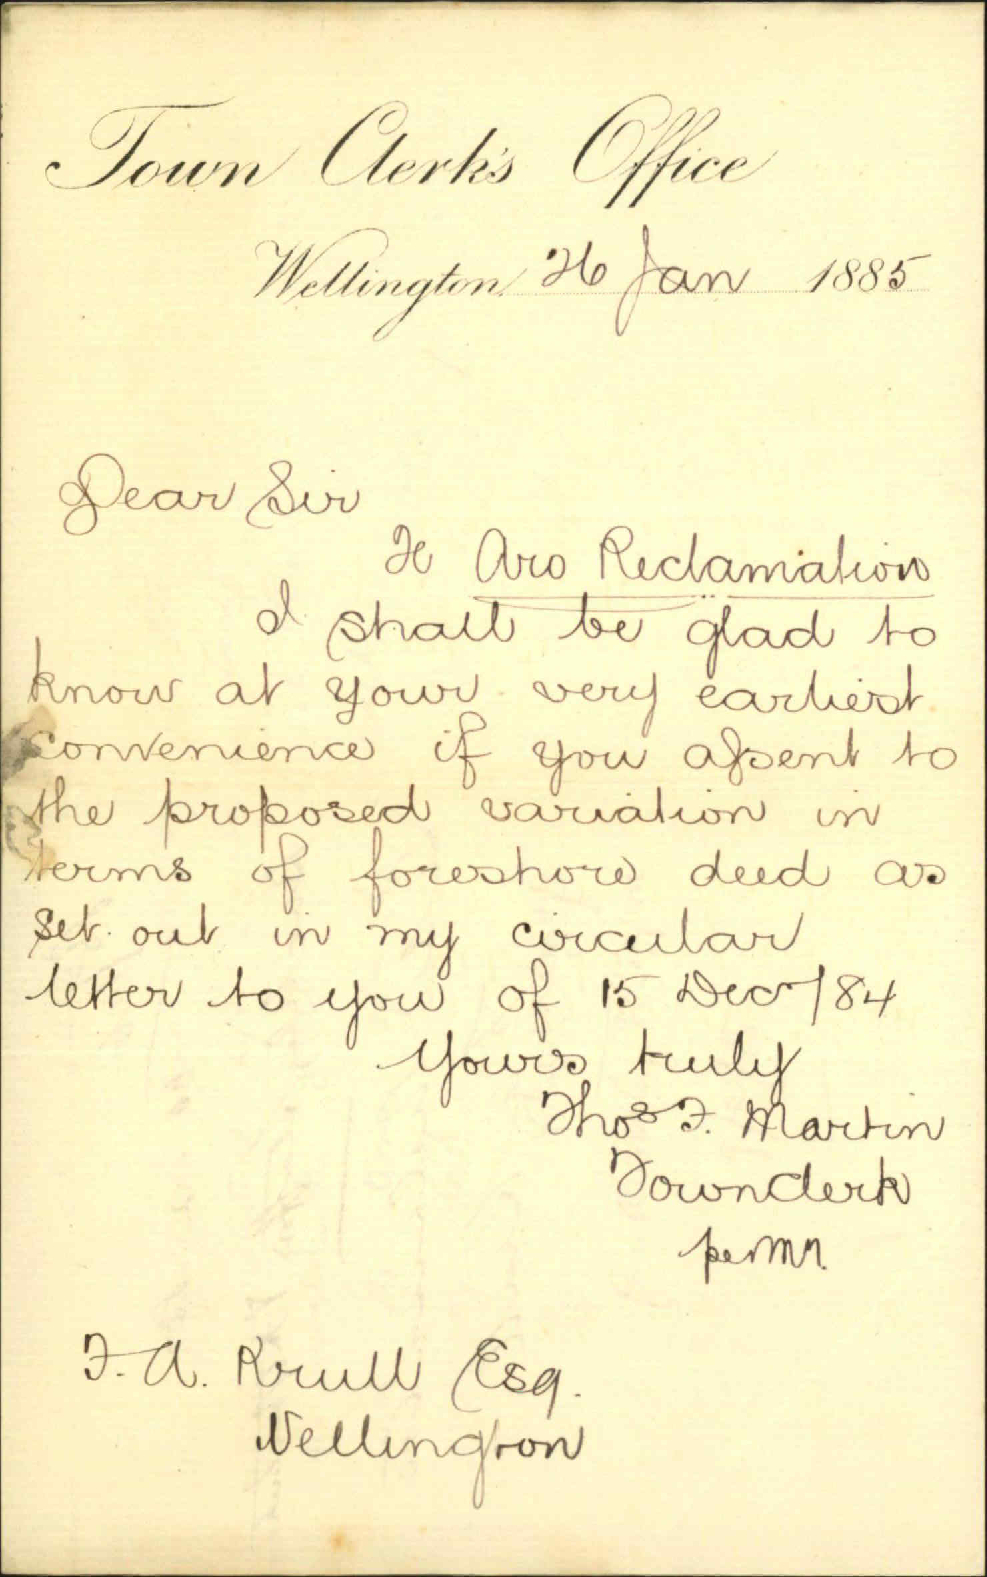 Town Clerk's Office
Wellington 26 Jan 1885
Dear Sir
Te Aro Reclamation
I shall be glad to
know at your very earliest
convenience if you assent to
the proposed variation in
terms of foreshore deed as
set out in my circular
letter to you of 15 Decr/84
Yours truly
Thos F. Martin
Town Clerk
per
F. A. Krull Esq.
Wellington